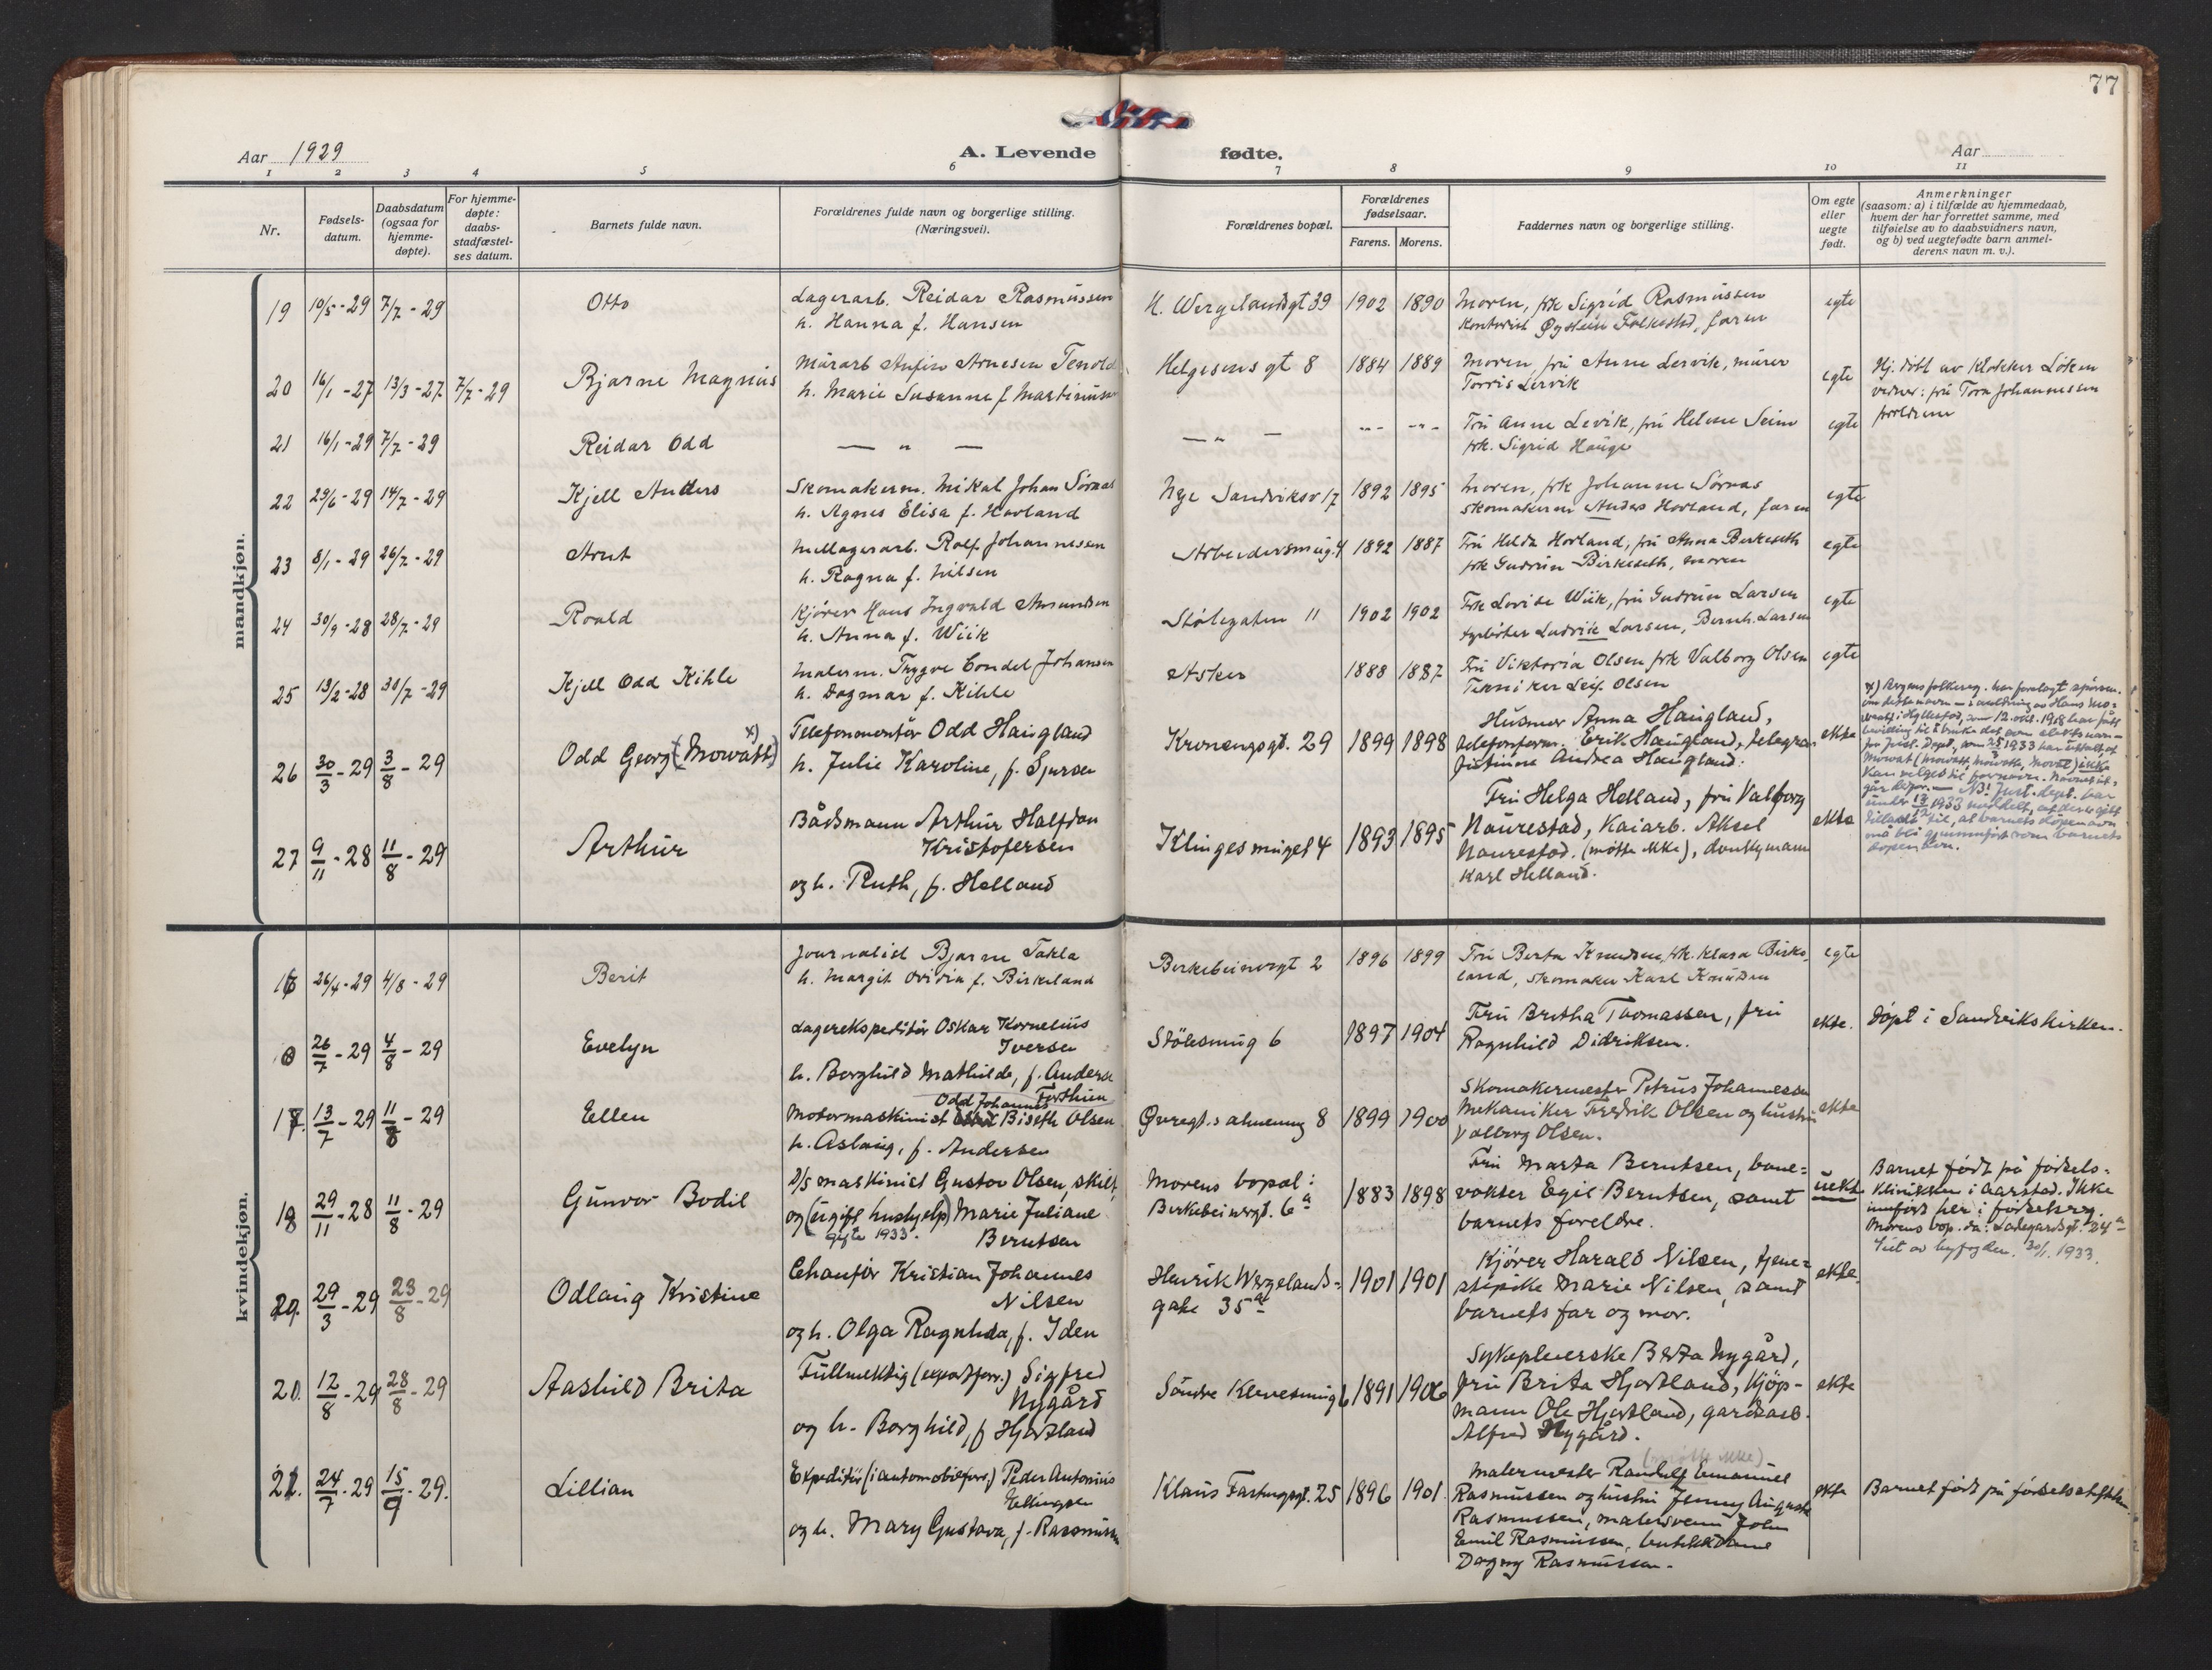 77
Aar 1929
A. Levende fødte.
Aar
1 2 3 4 5 6 7 8 9 10 11
Nr.
Fødsels-
datum.
Daabsdatum
(ogsaa for
hjemme-
døpte).
For hjemme-
døpte:
daabs-
stadfæstel-
ses datum.
Barnets fulde navn.
Forældrenes fulde navn og borgerlige stilling.
(Næringsvei).
Forældrenes bopæl.
Forældrenes
fødselsaar.
Farens. Morens.
Faddernes navn og borgerlige stilling.
Om egte
eller
uegte
født.
Anmerkninger
(saasom: a) i tilfælde av hjemmedaab,
hvem der har forrettet samme, med
tilføielse av to daabsvidners navn,
og b) ved uegtefødte barn anmel-
derens navn m. v.).
mandkjøn.
19 10/5-29 7/7-29 Otto
Lagerarb. Reidar Rasmussen
h. Hanna f. Hansen
H. Wergelandsgt 39 1902 1890
Moren, frk Sigrid Rasmussen
Kontorist Øystein Folkestad, faren
egte
20 16/1-27 13/3-27 7/7-29 Bjarne Magnus
Murarb Anfin Arnesen Tenold
h. Marie Susanne f. Martinussen
Helgesens gt 8 1884 1889
Moren, fru Anne Lervik, murer
Torris Lervik
egte
Hj. døbt av Klokker Löken
vidner: fru Tora Johannessen
foreldrene
21 16/1-29 7/7-29 Reidar Odd
— " —
— " —
Fru Anne Levik, fru Helene Seim
frk. Sigrid Hauge
egte
22 23/6-29 14/7-29 Kjell Anders
Skomakerm. Mikal Johan Sörnas
h. Agnes Elisa f. Hovland
Nye Sandviksv 17 1892 1895
Moren, frk Johanne Sörnas
skomakerm Anders Hovland, faren
egte
23 8/1-29 26/7-29 Arnt
Mellagerarb. Rolf Johannesen
h. Ragna f. Nilsen
Arbeidersmug. 4 1892 1887
Fru Hilda Hovland, fru Anna Birkeseth
frk Gudrun Birkeseth, moren
egte
24 30/9-28 28/7-29 Roald
Kjører Hans Ingvald Amundsen
h. Anna f. Wiik
Stölegaten 11 1902 1902
Frk Lovise Wiik, fru Gudrun Larsen
Ludvik Larsen, Bernh. Larsen
egte
25 13/2-28 30/7-29 Kjell Odd Kihle
Malerm. Trygve Condel Johansen
h. Dagmar f. Kihle
Asker 1888 1887
Fru Viktoria Olsen frk Valborg Olsen
Tekniker Leif Olsen
egte
26 30/3-29 3/8-29 Odd Georg (Mowatt) x)
Telefonmontør Odd Haugland
h. Julie Karoline, f. Sjursen
Kronengsgt. 29 1899 1898
Husmor Anna Haugland,
telefonform. Erik Haugland, telegra-
fistinne Andrea Haugland.
ekte
27 9/11-28 11/8-29 Arthur
Båtsmann Arthur Halfdan
Kristofersen
og h. Ruth, f. Helland
Klingesmuget 4 1893 1895
Fru Helga Helland, fru Valborg
Naurestad, Kaiarb. Aksel
Naurestad. (møtte ikke), donkymann
Karl Helland.
ekte
kvindekjøn.
16 26/4-29 4/8-29 Berit
Journalist Bjarne Takla
h. Margit Ovidia f. Birkeland
Birkebeinersgt 2 1896 1899
Fru Berta Knudsen, frk. Klara Birke-
land, skomaker Karl Knudsen
egte
26/7-29 4/8-29 Evelyn
Lagerekspeditör Oskar Kornelius
Iversen
h. Borghild Mathilde, f. Andersen
Stölesmug 6 1897 1904
Fru Bertha Thomassen, fru
Ragnhild Didriksen.
ekte.
Døpt i Sandvikskirken.
17. 13/7-29 11/8-29 Ellen
Odd Johannes
Motormaskinist Biseth Olsen
h. Aslaug, f. Andersen
Øvregt.s almenning 8 1899 1900
Skomakermester Petrus Johannessen
Mekaniker Fredrik Olsen og hustru
Valborg Olsen.
ekte
18 29/11-28 11/8-29 Gunvor Bodil
D/s maskinist Gustav Olsen, skilt,
og (ugift hushjelp) Marie Juliane
gifte 1933. Berntsen
Morens bopæl:
Birkebeinersgt. 6 a 1883 1898
Fru Marta Berntsen, bane-
vokter Egil Berntsen, samt
barnets foreldre.
uekte
Barnet født på fødsels-
klinikken i Aarstad. Ikke
innført her i fødselsreg.
Morens bop. da: Ladegårdsgt. 24 a
30/1. 1933.
29/3-29 23/8-29 Odlaug Kristine
Chaufør Kristian Johannes
Nilsen
og h. Olga Ragnhilda, f. Iden
Henrik Wergelands-
gate 35 a 1901 1901
Kjører Harald Nilsen, tjene-
stepike Marie Nilsen, samt
barnets far og mor.
ekte.
20. 12/8-29 28/8-29 Aashild Brita
Fullmektig (exportforr.) Sigfred
Nygård
og h. Borghild, f Hjortland
Söndre Klevesmug 6 1891 1906
Sykepleierske Berta Nygård,
fru Brita Hjortland, kjöp-
mann Ole Hjortland, gardsarb.
Alfred Nygård.
ekte
21. 24/7-29 15/9-29. Lillian
Expeditör (i automobilforr.) Peder Antonius
Ellingsen
og h. Mary Gustava, f. Rasmussen
Klaus Fastingsgt. 25 1896 1901.
(møtte ikke)
Malermester Randulf Emanuel
Rasmussen og hustru Jenny Auguste
Rasmussen, malersvenn John
Emil Rasmussen, butikkdame
Dagny Rasmussen.
ekte
Barnet født på fødselsstiftelsen.